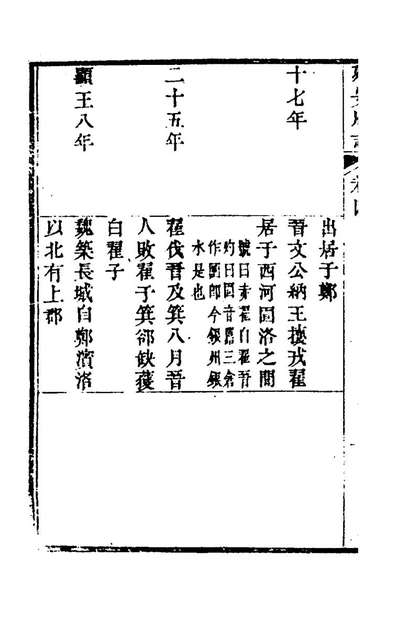 出居于鄭
十七年
晉文公納王攘戎翟
居于西河圁洛之間
號曰赤翟白翟晉
灼曰圁音嚚三倉
作圁即今銀州銀
水是也
二十五年
翟伐晉及箕八月晉
人敗翟于箕郤缺獲
白翟子
顯王八年
魏築長城自鄭濱洛
以北有上郡